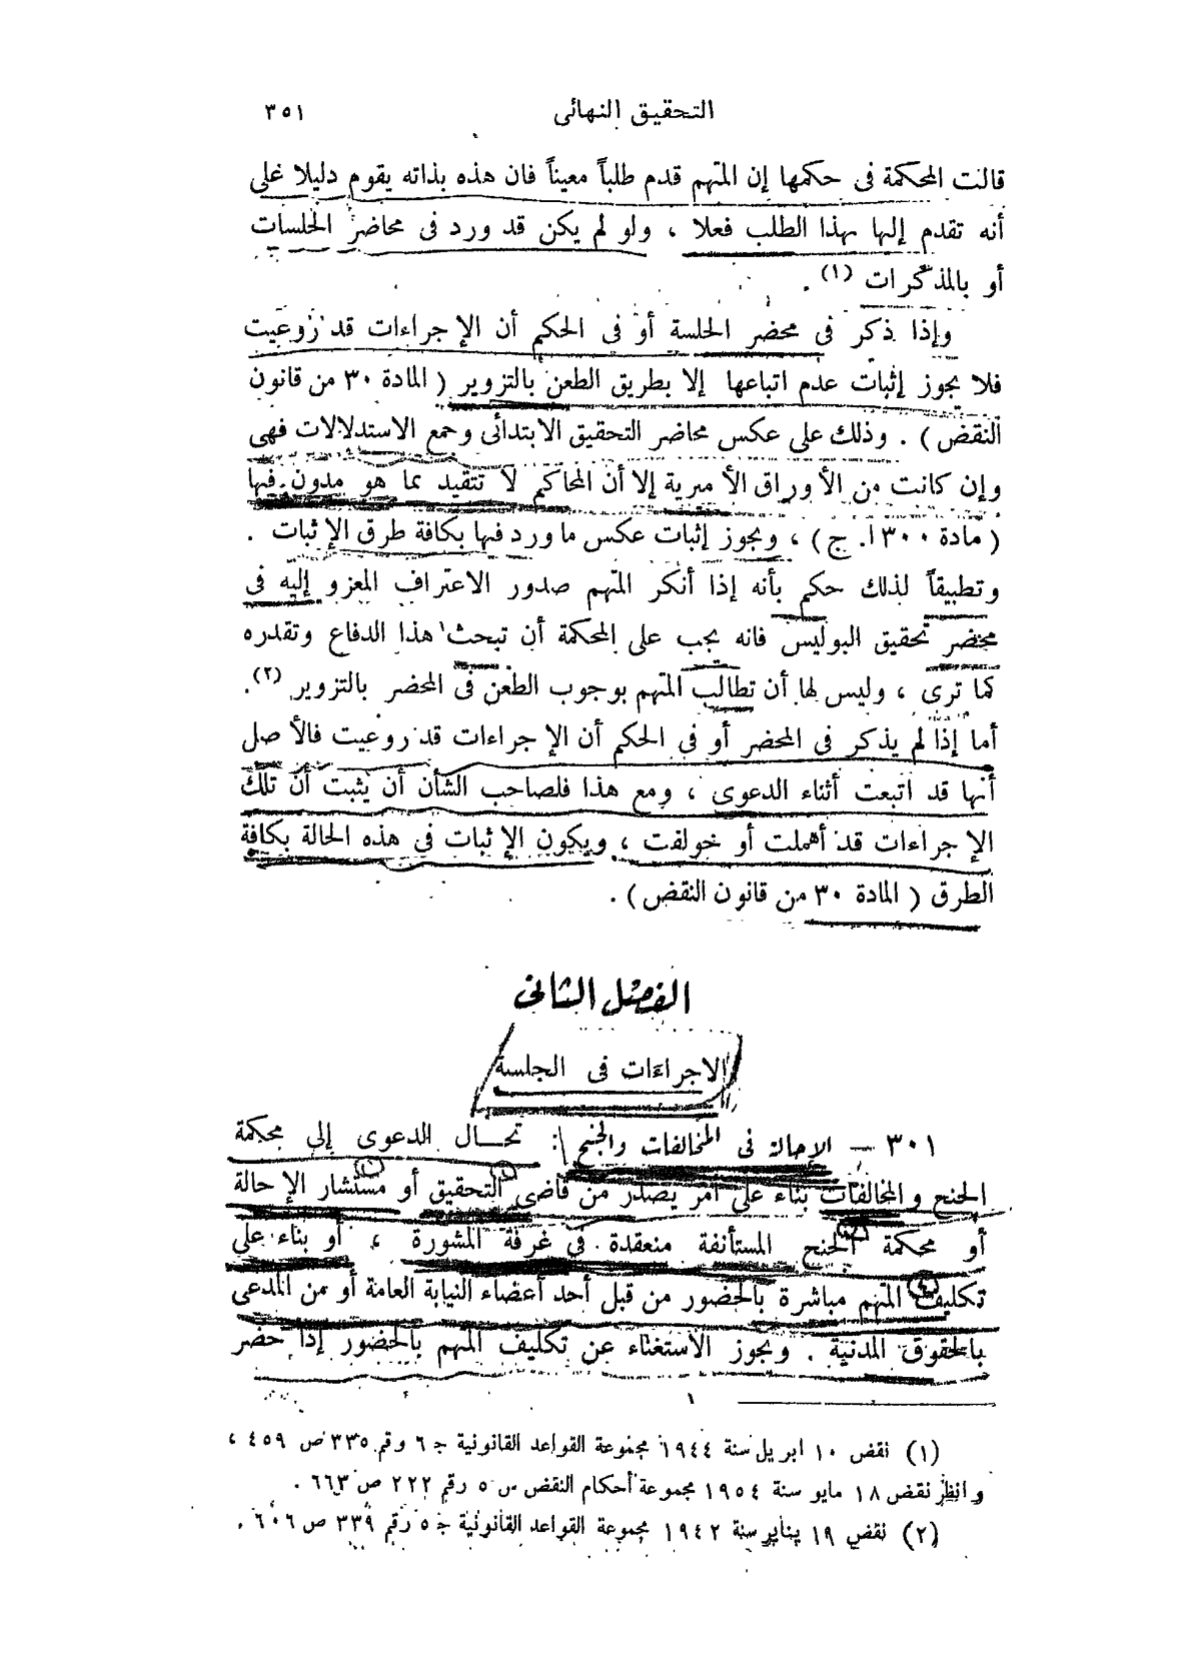 التحقيق النهائى ٣٥١
قالت المحكمة فى حكمها إن المتهم قدم طلباً معيناً فان هذه بذاته يقوم دليلا على
أنه تقدم إليها بهذا الطلب فعلا ، ولو لم يكن قد ورد فى محاضر الجلسات
أو بالمذكرات (١) .
وإذا ذكر فى محضر الجلسة أو فى الحكم أن الإجراءات قد روعيت
فلا يجوز إثبات عدم اتباعها إلا بطريق الطعن بالتزوير ( المادة ٣٠ من قانون
النقض ) . وذلك على عكس محاضر التحقيق الابتدائى وجمع الاستدلالات فهى
وإن كانت من الأوراق الأميرية إلا أن المحاكم لا تتقيد بما هو مدون فيها
( مادة ٣٠٠ ا. ج ) ، ويجوز إثبات عكس ما ورد فيها بكافة طرق الإثبات .
وتطبيقاً لذلك حكم بأنه إذا أنكر المتهم صدور الاعتراف المعزو إليه فى
محضر تحقيق البوليس فانه يجب على المحكمة أن تبحث هذا الدفاع وتقدره
كما ترى ، وليس لها أن تطالب المتهم بوجوب الطعن فى المحضر بالتزوير (٢).
أما إذا لم يذكر فى المحضر أو فى الحكم أن الإجراءات قد روعيت فالأصل
أنها قد اتبعت أثناء الدعوى ، ومع هذا فلصاحب الشأن أن يثبت أن تلك
الإجراءات قد أهملت أو خولفت ، ويكون الإثبات فى هذه الحالة بكافة
الطرق ( المادة ٣٠ من قانون النقض ) .
الفصل الثانى
الاجراءات فى الجلسة
٣٠١ — الإحالة فى المخالفات والجنح : تحال الدعوى إلى محكمة
الجنح والمخالفات بناء على أمر يصدر من قاضى التحقيق أو مستشار الإحالة
أو محكمة الجنح المستأنفة منعقدة فى غرفة المشورة ، أو بناء على
تكليف المتهم مباشرة بالحضور من قبل أحد أعضاء النيابة العامة أو من المدعى
بالحقوق المدنية . ويجوز الاستغناء عن تكليف المتهم بالحضور إذا حضر
(١) نقض ١٠ ابريل سنة ١٩٤٤ مجموعة القواعد القانونية ج ٦ رقم ٣٣٥ ص ٤٥٩ ،
وانظر نقض ١٨ مايو سنة ١٩٥٤ مجموعة أحكام النقض س ٥ رقم ٢٢٢ ص ٦٦٣ .
(٢) نقض ١٩ يناير سنة ١٩٤٢ مجموعة القواعد القانونية ج ٥ رقم ٣٣٩ ص ٦٠٦ .